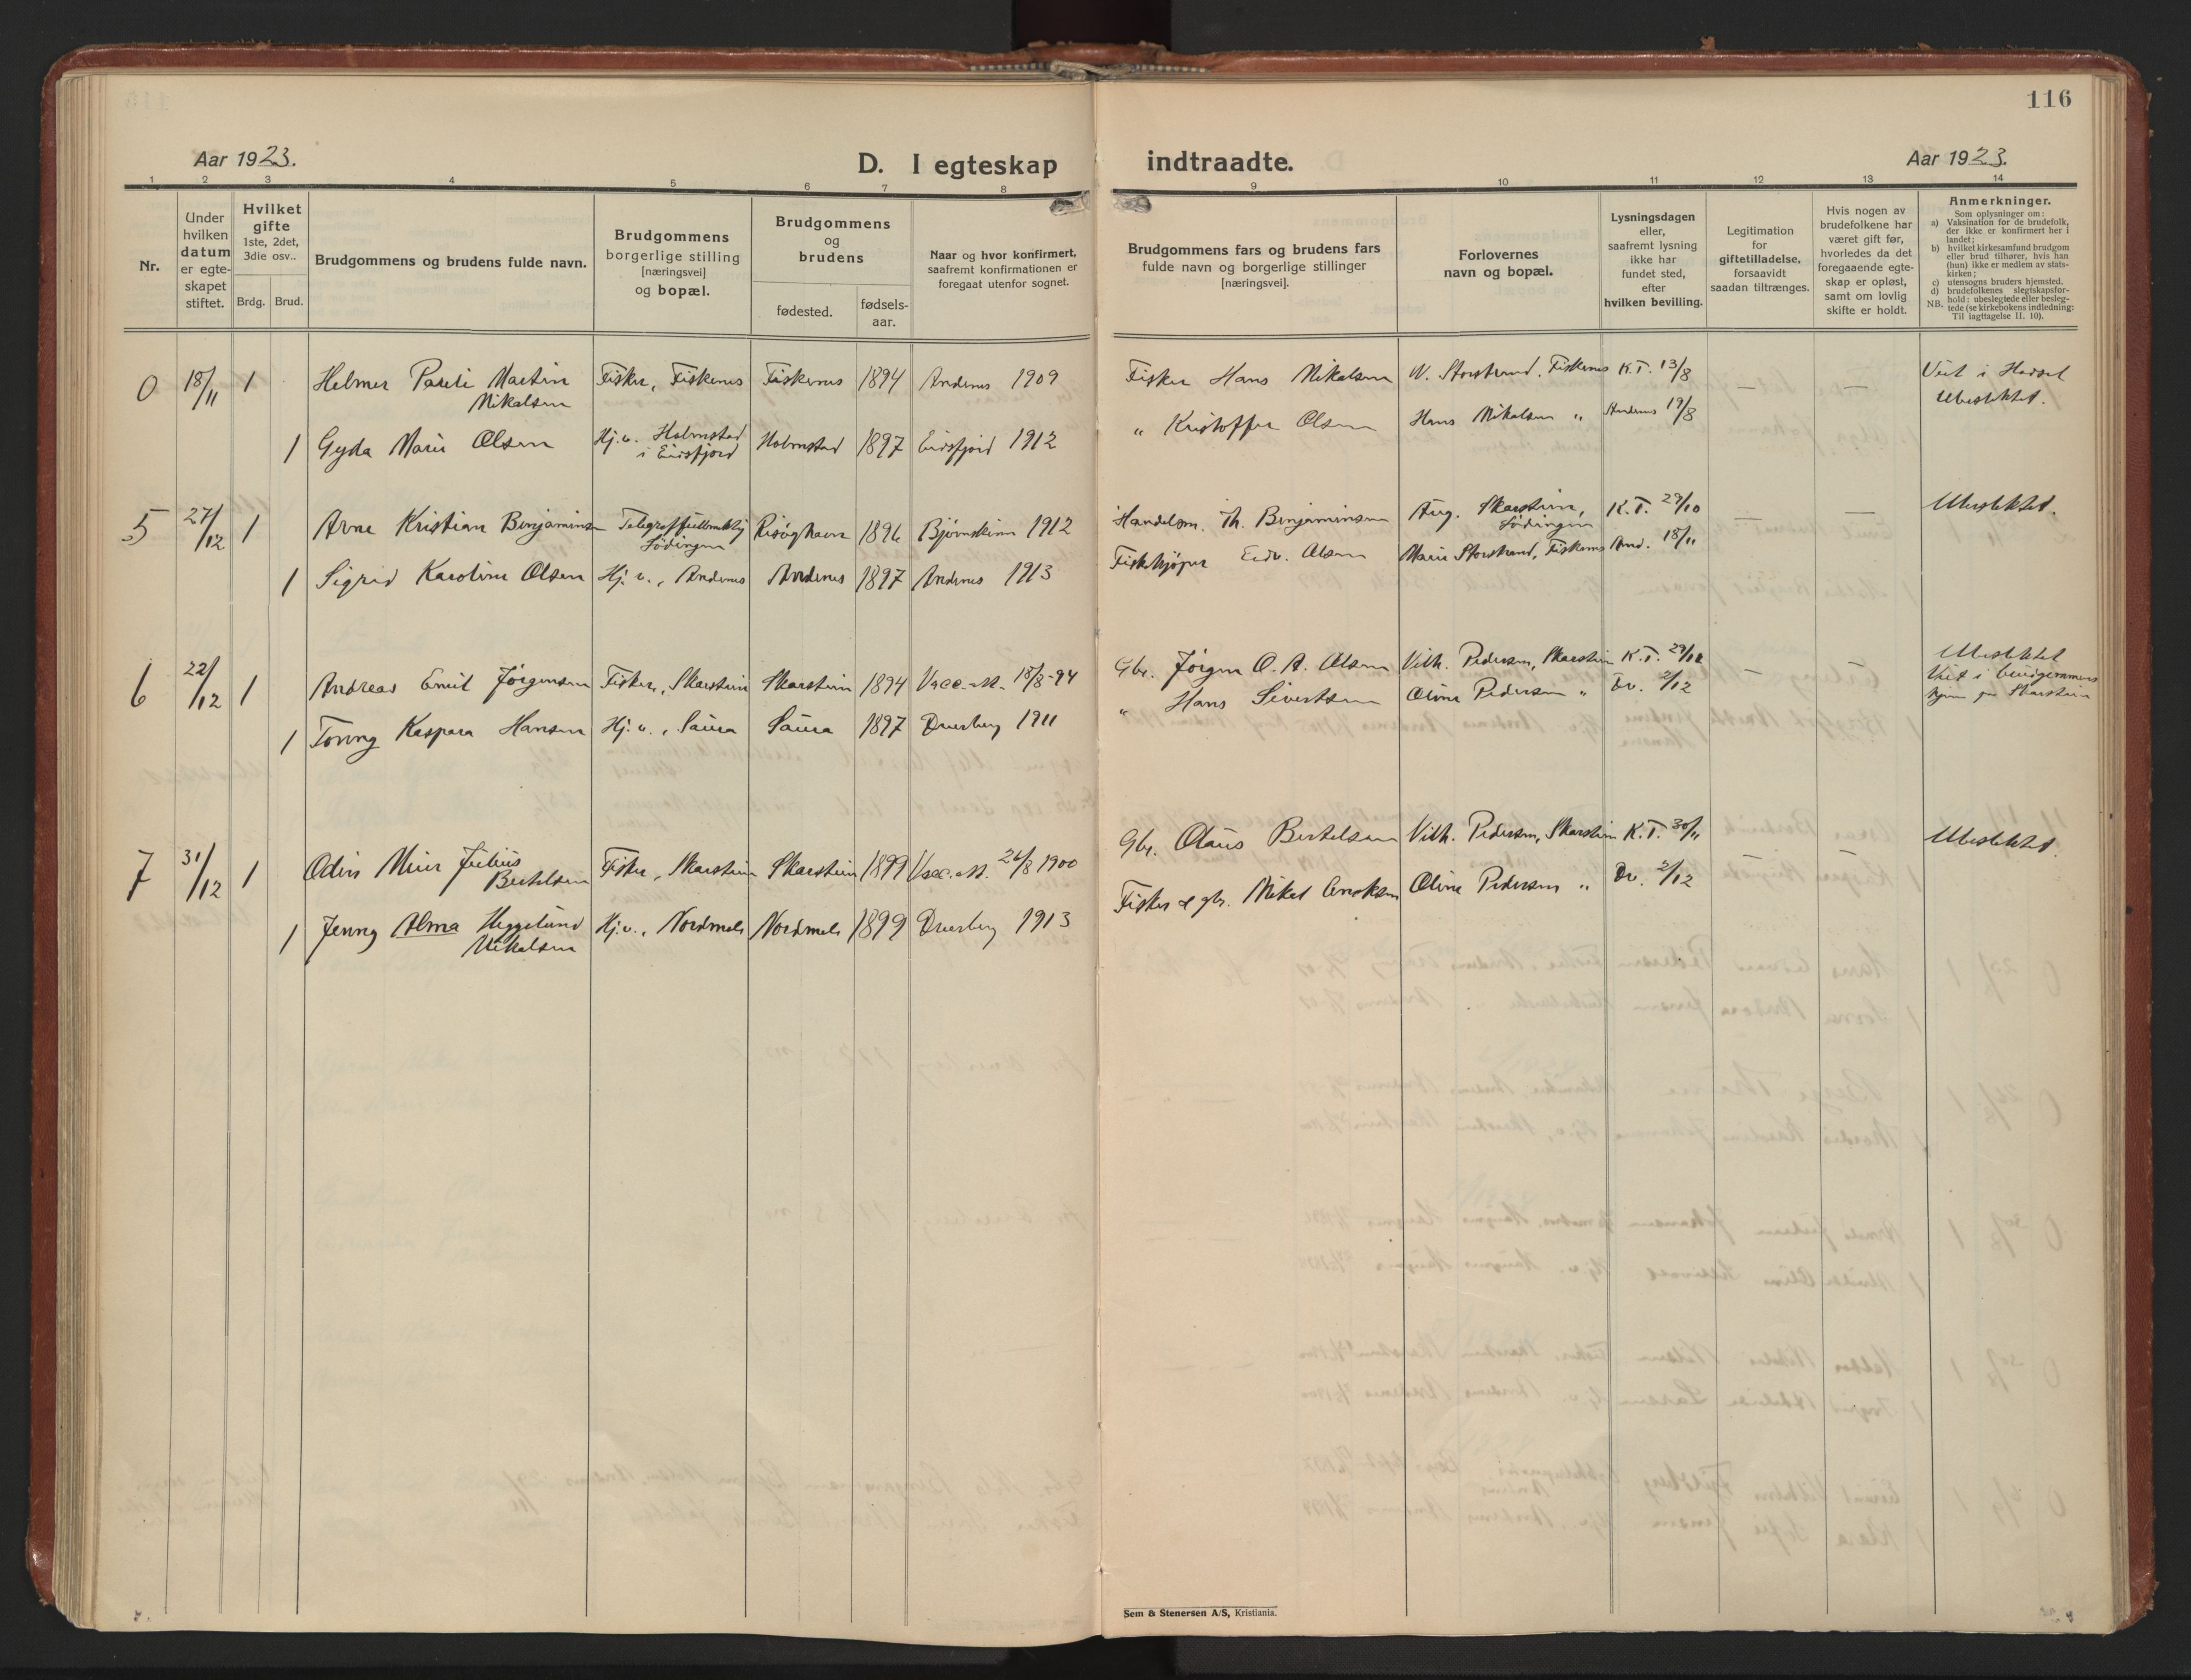 116
Aar 1923.
D. I egteskap indtraadte.
Aar 1923.
1 2 3 4 5 6 7 8 9 10 11 12 13 14
Nr.
Under hvilken datum er egteskapet stiftet.
Hvilket gifte 1ste, 2det, 3die osv..
Brdg. Brud.
Brudgommens og brudens fulde navn.
Brudgommens borgerlige stilling [næringsvei] og bopæl.
Brudgommens og brudens
fødested.
fødselsaar.
Naar og hvor konfirmert, saafremt konfirmationen er foregaat utenfor sognet.
Brudgommens fars og brudens fars fulde navn og borgerlige stillinger [næringsvei].
Forlovernes navn og bopæl.
Lysningsdagen eller, saafremt lysning ikke har fundet sted, efter hvilken bevilling.
Legitimation for giftetilladelse, forsaavidt saadan tiltrænges.
Hvis nogen av brudefolkene har været gift før, hvorledes da det foregaaende egteskap er opløst, samt om lovlig skifte er holdt.
Anmerkninger.
Som oplysninger om:
a) Vaksination for de brudefolk, der ikke er konfirmert her i landet;
b) hvilket kirkesamfund brudgom eller brud tilhører, hvis han (hun) ikke er medlem av statskirken;
c) utensogns bruders hjemsted.
d) brudefolkenes slegtskapsforhold: ubeslegtede eller beslegtede (se kirkebokens indledning: Til iagttagelse II. 10).
NB.
0 18/11 1 Helmer Pauli Martin Nikalsen Fisker, Fiskenes Fiskenes 1894 Andenes 1909 Fisker Hans Nikalsen N. Storstrand, Fiskenes K.T. 13/8 — — Viet i Hadsel Ubeslektet.
1 Gyda Marie Olsen Hj.v. Holmstad i Eidsfjord Holmstad 1897 Eidsfjord 1912 " Kristoffer Olsen Hans Nikalsen " Andenes 19/8
5 27/12 1 Arne Kristian Benjaminsen Telegraffuldmektig Lødingen Risøyhavn 1896 Bjørnskinn 1912 Handelsm. Th. Benjaminsen Aug. Skarstein, Lødingen K.T. 29/10 — — Ubeslektet.
1 Sigrid Karoline Olsen Hj.v., Andenes Andenes 1897 Andenes 1913 Fiskekjøper Edv. Olsen Marie Storstrand, Fiskenes And. 18/11
6 22/12 1 Andreas Emil Jørgensen Fisker, Skarstein Skarstein 1894 Vacc. att. 18/8-94 Gbr. Jørgen O. A. Olsen Vilh. Pedersen, Skarstein K.T. — Ubeslektet Viet i brudgommens hjem paa Skarstein
1 Tonny Kaspara Hansen Hj.v., Saura Saura 1897 Dverberg 1911 " Hans Sivertsen Oline Pedersen " Dv. 2/12
7 31/12 1 Odin Meier Julius Bertelsen Fisker, Skarstein Skarstein 1899 Vacc. att. 26/8 1900 Gbr. Olaus Bertelsen Vilh. Pedersen, Skarstein K.T. 30/11 Ubeslektet.
1 Jenny Alma Heggelund Nikalsen Hj.v., Nordmela Nordmela 1899 Dverberg 1913 Fisker & gbr. Mikal Oline Pedersen " Dv. 2/12
Sem & Stenersen A/S, Kristiania.